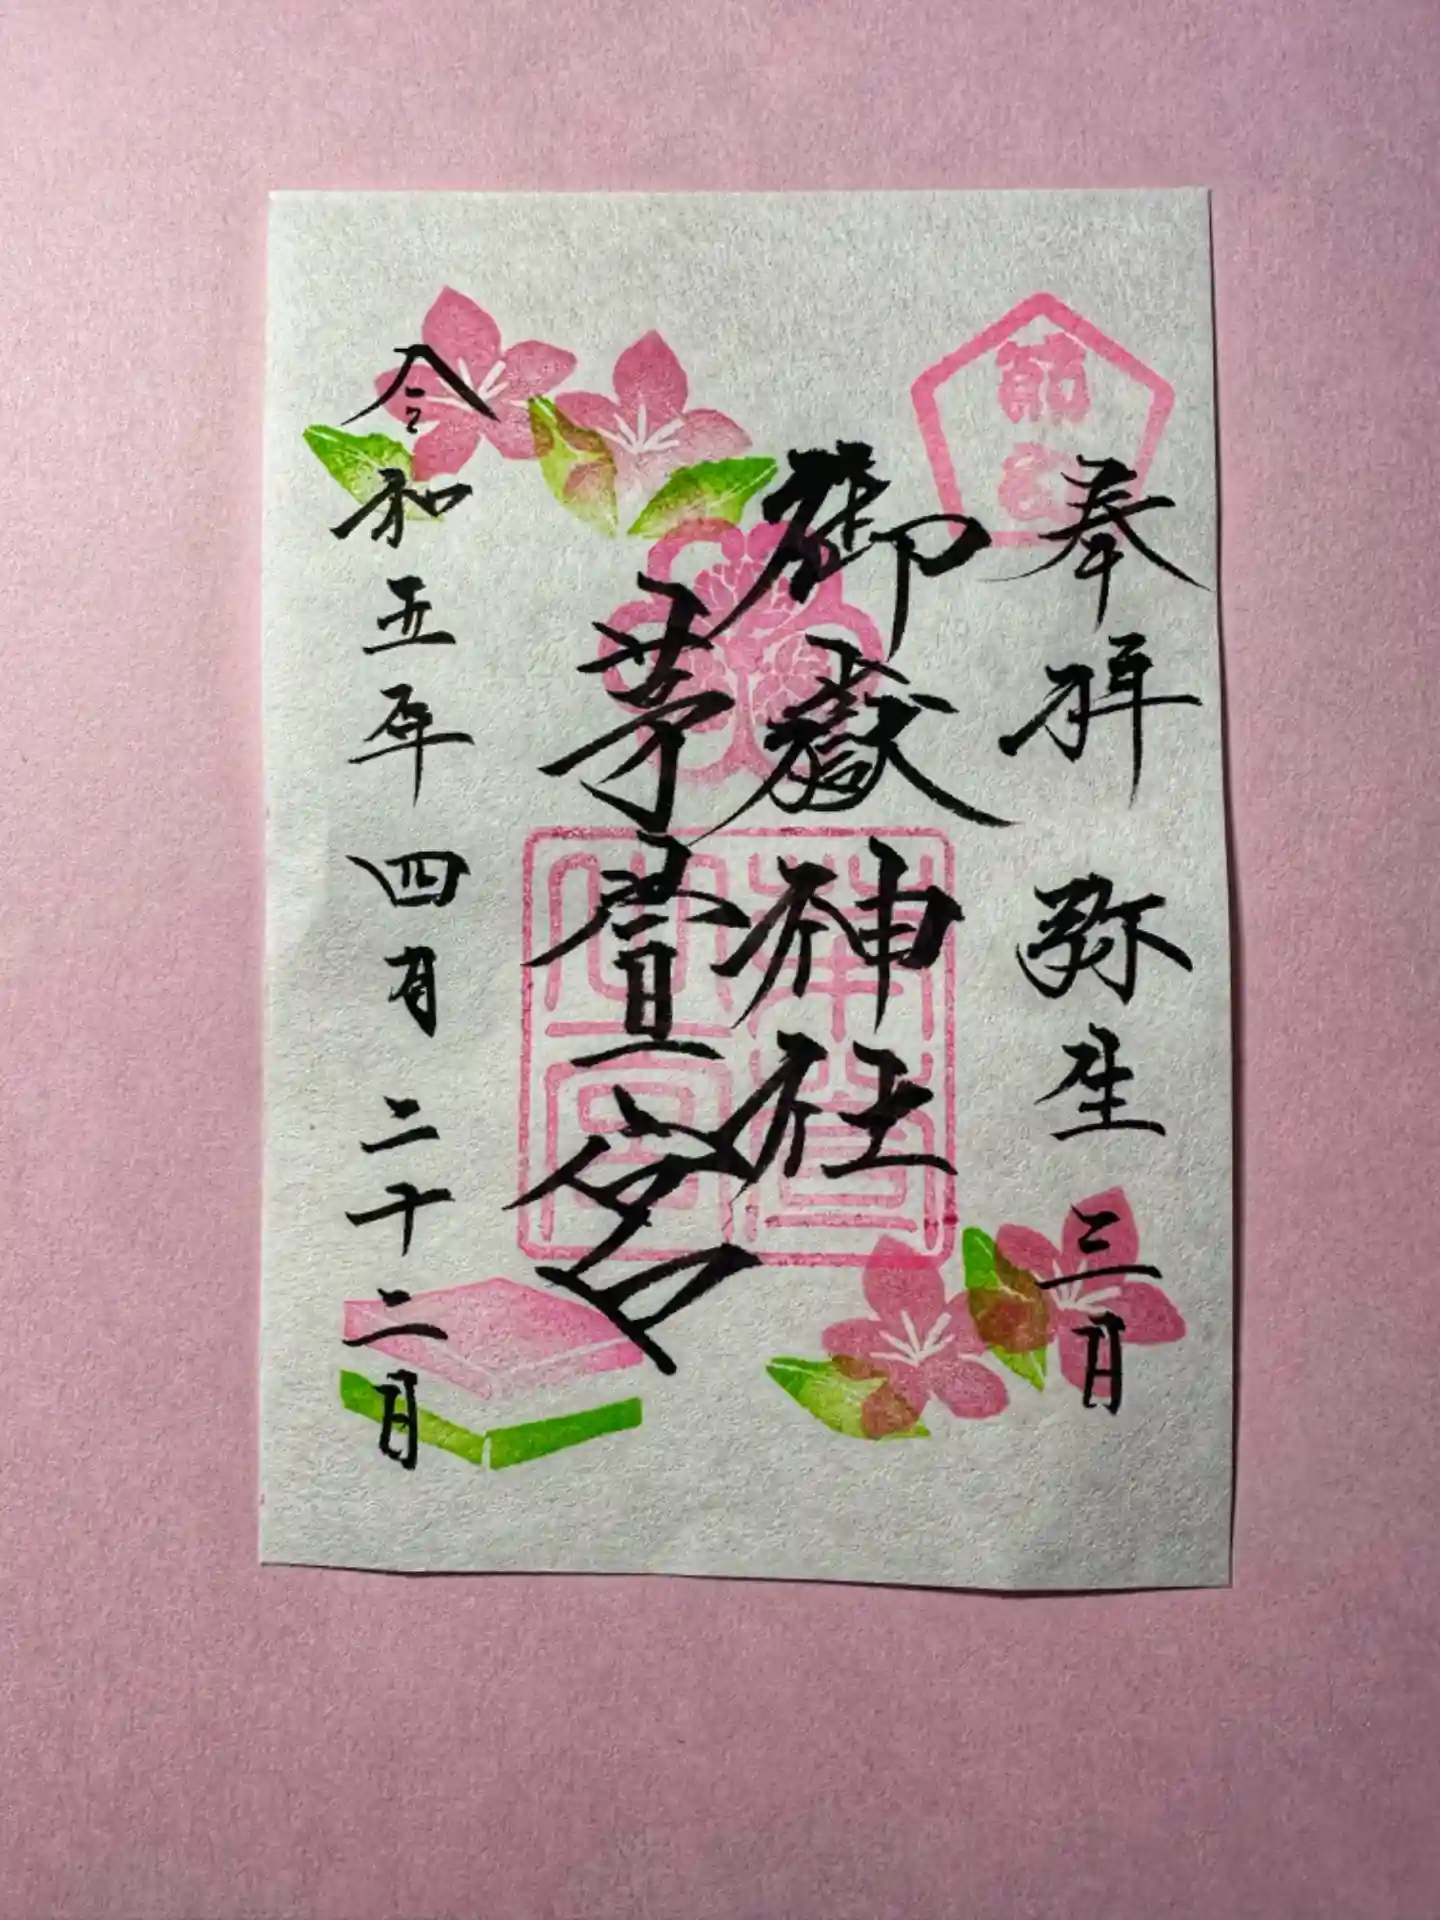 節
奉拝 弥生 三月
御嶽神社
茅萱宮
令和五年四月二十二日